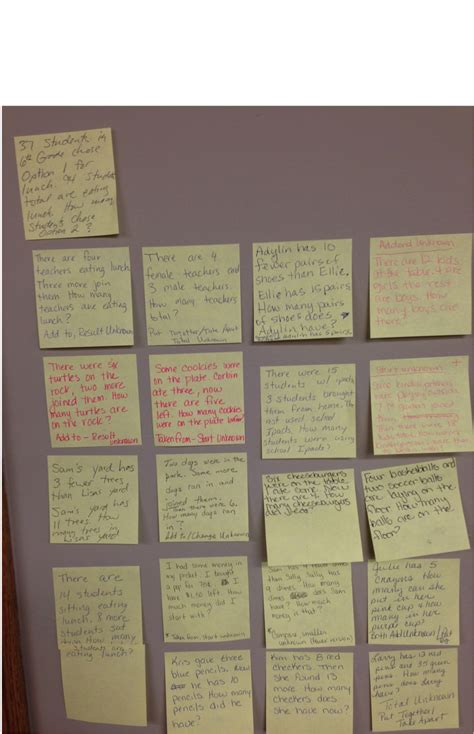 37 Students in
6th Grade chose
Option 1 for
lunch. students
total are eating
lunch. How many
Students chose
Option 2?
There are four
teachers eating lunch.
Three more join
them. How many
teachers are eating
lunch?
Add to, Result Unknown
There are 4
female teachers and
3 male teachers.
How many teachers
total?
Put Together/Take Apart
Total Unknown
Adylin has 10
fewer pairs of
shoes then Ellie.
Ellie has 15 pairs
How many pairs
of shoes does
Adylin have?
Addend Unknown
There are 12 kids
at the table. 4 are
girls the rest
are boys. How
many boys are
there
There were six
turtles on the
rock, two more
joined them. How
many turtles are
on the rock?
Add to - Result
Unknown
Some cookies were
on the plate. Corbin
ate three, now
there are five
left. How many cookies
were on the plate
Taken from - Start Unknown
There were 15
students w/ ipads
3 students brought
them from home. the
rest used school
Ipads. How many
students were using
school Ipads?
Start unknown
Some
were playing outside
Sam's yard has
3 fewer trees
than Lisa's yard
Sam's yard has
11 trees. How
many trees in
Lisa's yard
Two dogs were in the
park. Some more
dogs ran in and
joined them.
then there were 6.
How many dogs ran
in?
Add to/Change Unknown
Six cheeseburgers
were on the table.
I ate some. Now
there are 4. How
many cheeseburgers
did I eat?
Four basketballs and
two soccer balls
are laying on the
floor. How many
balls are on the
floor?
There are
14 students
sitting eating
lunch. 8 more
students sat
down How many
students are
eating lunch?
I had some money in
my pocket. I bought
a pop for I
have $1.50 left. How
much money did I
start with?
Taken from - Start unknown
Sam has 4
then Sally. Sally has
dimes. How many
dimes does Sam
have? How much
money is that?
Compare smaller
unknown
Julie has 5
crayons How
many can she
put in her
pink cup & how
many in her
purple cup?
Both Add Unknown
Kris gave three
blue pencils. Now
he has 10
pencils. How many
pencils did he
have?
Kim has 8 red
checkers. Then
she found 13
more. How many
checkers does
she have now?
Larry has 13 red
pens and 15 green
pens. How many
pens does Larry
have?
Total Unknown
Put Together/
Take Apart